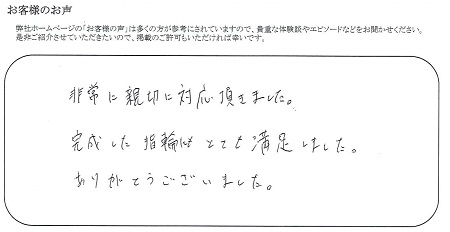 お客様のお声
弊社ホームページの「お客様の声」は多くの方が参考にされていますので、貴重な体験談やエピソードなどをお聞かせください。
是非ご紹介させていただきたいので、掲載のご許可もいただければ幸いです。
非常に親切に対応頂きました。
完成した指輪はとても満足しました。
ありがとうございました。